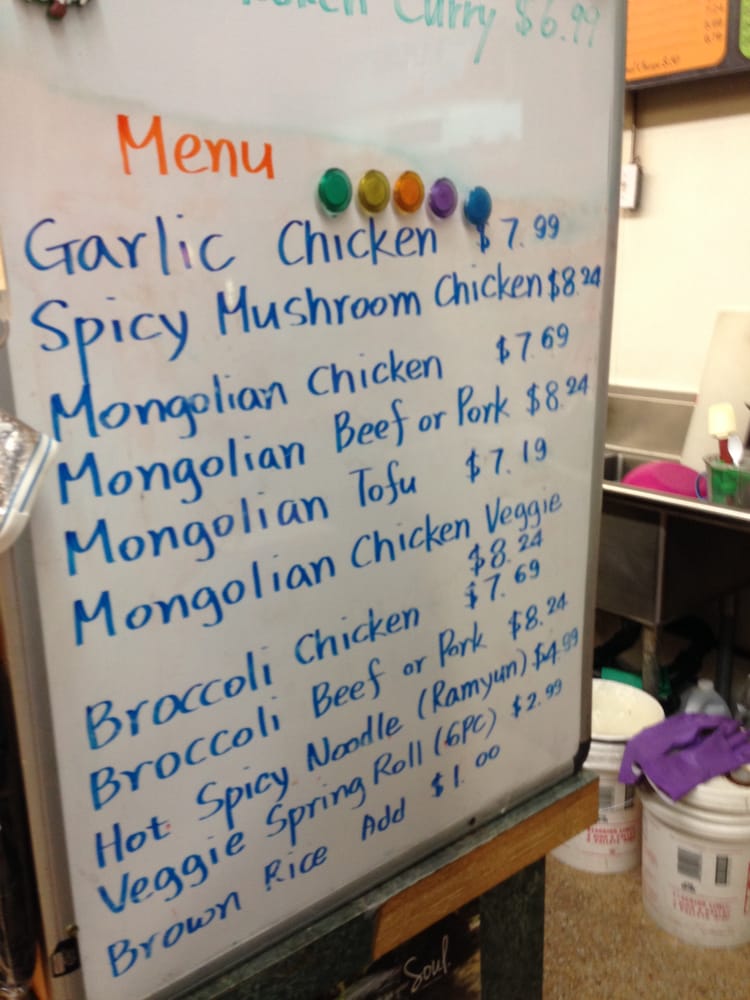 Curry $6.99
Menu
Garlic Chicken $7.99
Spicy Mushroom Chicken $8.24
Mongolian Chicken $7.69
Mongolian Beef or Pork $8.24
Mongolian Tofu $7.19
Mongolian Chicken Veggie
$8.24
Broccoli Chicken $7.69
Broccoli Beef or Pork $8.24
Hot Spicy Noodle (Ramyun) $4.99
Veggie Spring Roll (6PC) $2.99
Brown Rice Add $1.00
Soul.